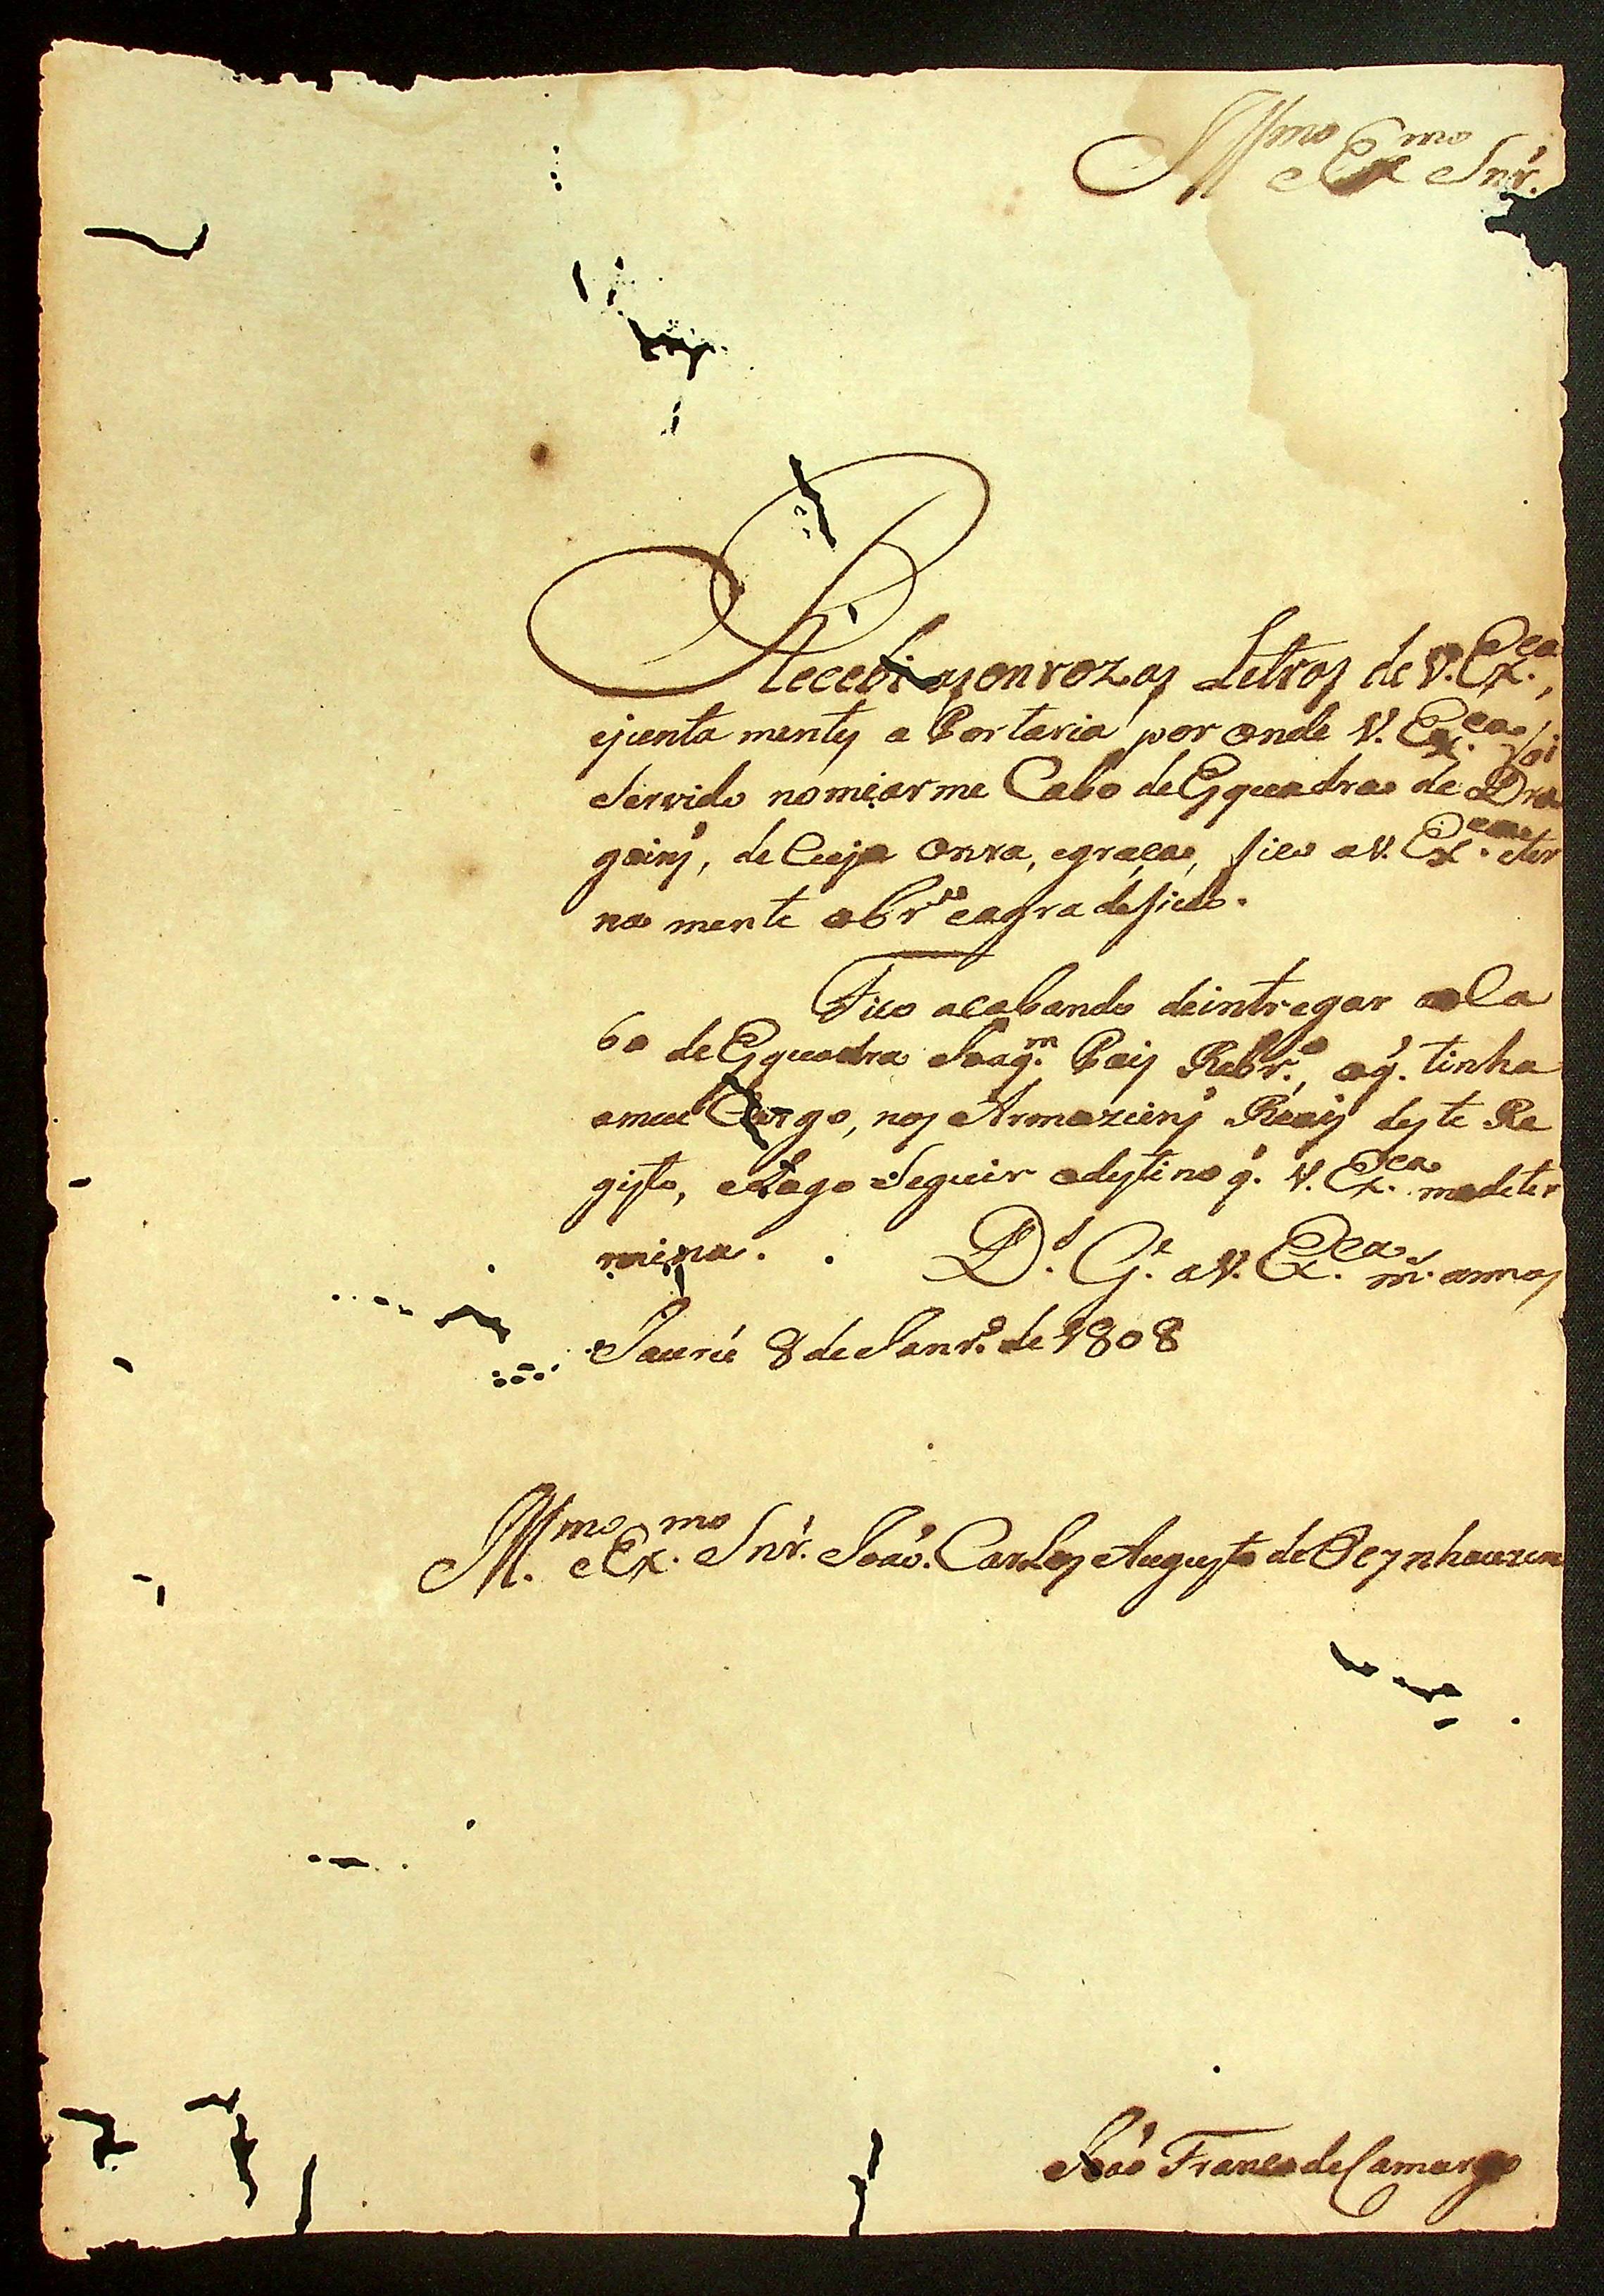 Illmo e Exmo Snr.
Recebi as onrozas Letras de V. Exca,
ejunta mentes a Portaria por onde V. Exca foi
Servido nomiarme Cabo de Esquadra de Dra
goins, de Cuja Onra, egraca, fico a V. Exca eter
na mente obrdo eagradesido.
Fico acabando deintregar ao Ca
bo de Esquadra Joaqm. Pais Rebro., oq. tinha
ameu Cargo, nos Armazieins Reais deste Re
gisto, eLogo Seguir odestino q. V. Exca medeter
mina. Ds. Ge. a V. Exca ms. annos
Jaurú 8 de Janro. de 1808
Illmo e Exmo Snr. João Carlos Augusto de Oeynhauzen
João Franco de Camargo